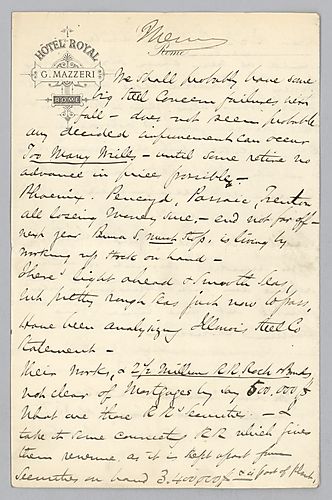 HOTEL ROYAL
G. MAZZERI
ROME
Rome
We shall probably have some
big Steel Concern failures next
fall - does not seem probable
any decided improvement can occur
Too Many Mills - until some retire no
advance in price possible -
Phoenix. Pencoyd, Passaic, Trenton
all loseing money, sure, - end not far off -
next year Bema S. must stop, is living by
working up stock on hand -
There's light ahead & smooth Sea,
but pretty rough seas just now to pass,
Have been analyzing Illinois Steel Co
Statement -
their works, & 2½ Million R.R. Stock & Bonds
not clear of Mortgages by say 500,000 $
What are these R R securities - I
take it some connecting R.R which gives
them revenue, as it is kept apart from
Securities on hand 3.400,000 $ & is part of Plant,